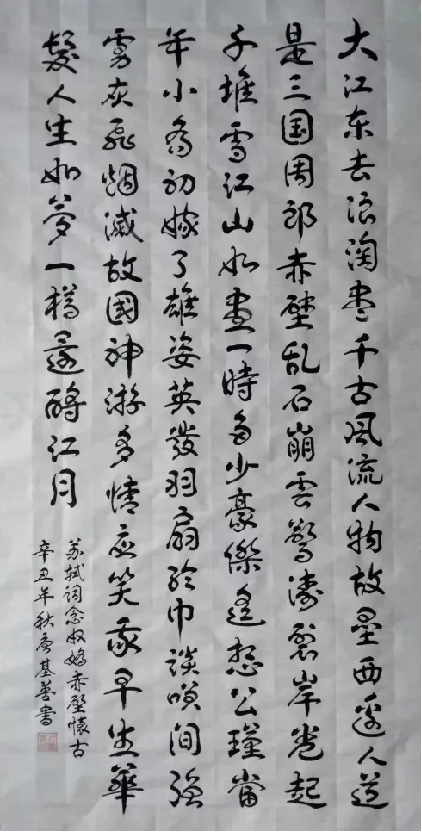 大江东去浪淘盡千古風流人物故垒西邊人道
是三国周郎赤壁乱石崩雲驚濤裂岸卷起
千堆雪江山如畫一時多少豪傑遥想公瑾當
年小喬初嫁了雄姿英發羽扇纶巾談咲間强
虜灰飛烟滅故國神游多情应笑我早生華
髮人生如夢一樽還酹江月
苏轼词念奴娇赤壁懷古
辛丑年秋唐基善書